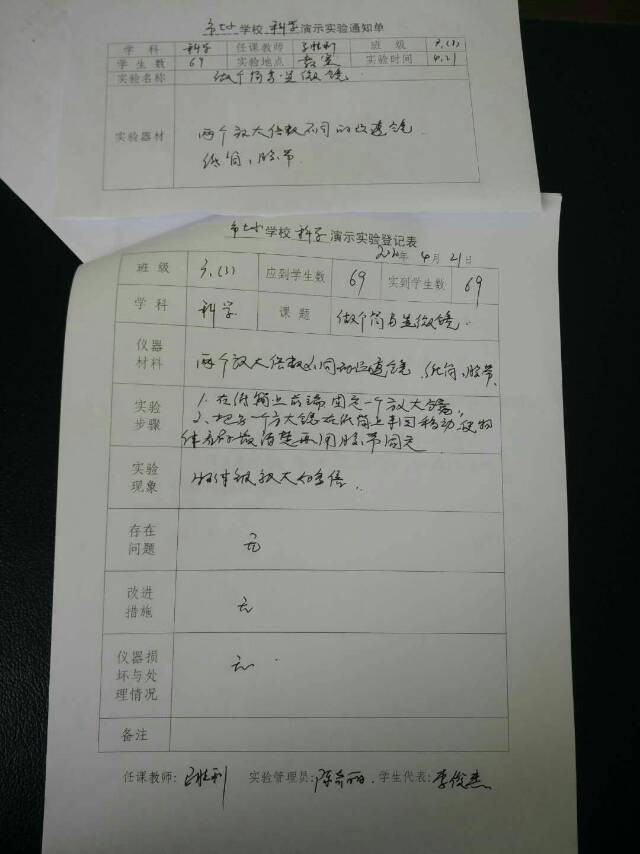 学校 科学 演示实验通知单
学科 科学 任课教师 王胜利 班级 六.(3)
学生数 69 实验地点 教室 实验时间 4.21
实验名称 做个简易显微镜
实验器材 两个放大倍数不同的凸透镜
纸筒、胶带
学校 科学 演示实验登记表
年 4 月 21 日
班级 六.(3) 应到学生数 69 实到学生数 69
学科 科学 课题 做个简易显微镜
仪器材料 两个放大倍数不同的凸透镜、纸筒、胶带
实验步骤 1、在纸筒上前端固定一个放大镜,
2、把另一个放大镜在纸筒上来回移动,使物
体看到最清楚再用胶带固定
实验现象 物体被放大
存在问题 无
改进措施 无
仪器损坏与处理情况 无
备注
任课教师: 王胜利 实验管理员: 学生代表: 李俊杰